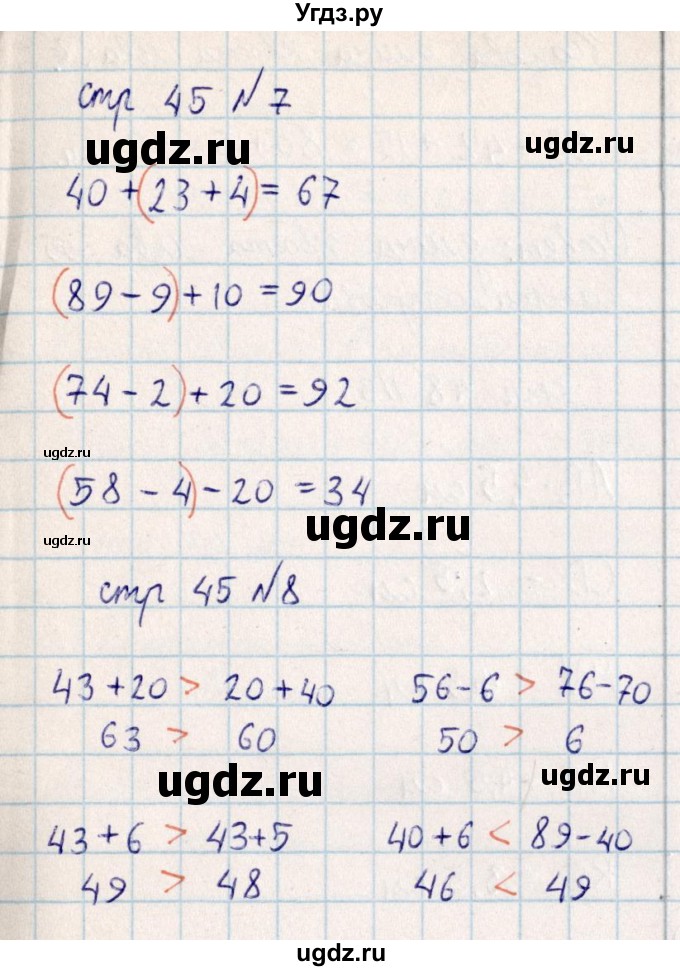 Угдз.ру
стр 45 №7
ugdz.ru
40+(23+4)=67
(89-9)+10=90
(74-2)+20=92
ugdz.ru
(58-4)-20=34
ugdz.ru
ugdz.ru
стр 45 №8
43+20 > 20+40 56-6 > 76-70
63 > 60 50 > 6
ugdz.ru ugdz.ru
43+6 > 43+5 40+6 < 89-40
49 > 48 46 < 49
ugdz.ru